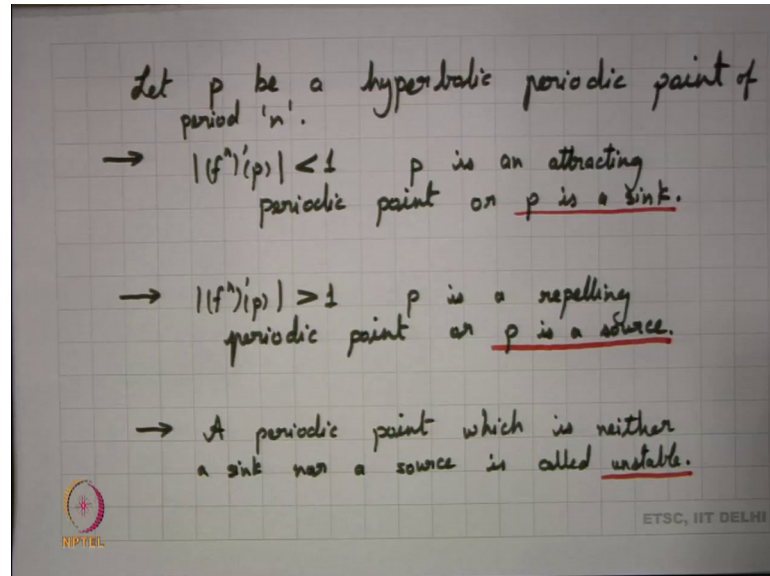 Let p be a hyperbolic periodic point of
period 'n'.
→ |(fⁿ)'(p)| < 1 p is an attracting
periodic point or p is a sink.
→ |(fⁿ)'(p)| > 1 p is a repelling
periodic point or p is a source.
→ A periodic point which is neither
a sink nor a source is called unstable.
NPTEL
ETSC, IIT DELHI